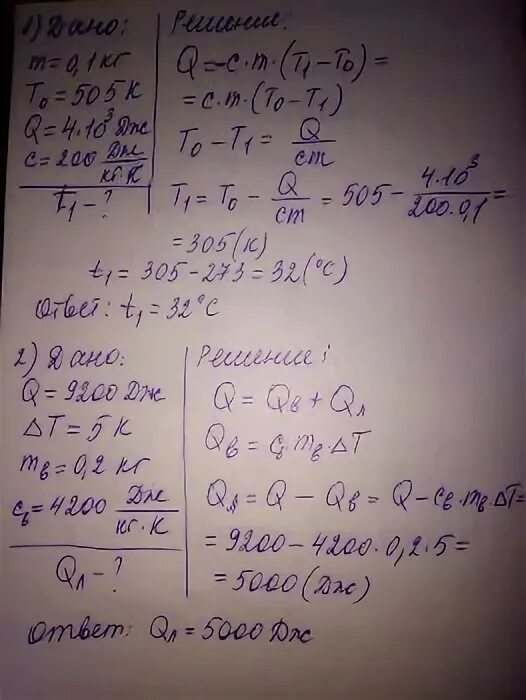 1) Дано:
m = 0,1 кг
T₀ = 505 К
Q = 4·10³ Дж
c = 200 Дж/кг·К
t₁ - ?
Решение:
Q = -c·m·(T₁ - T₀) =
= c·m·(T₀ - T₁)
T₀ - T₁ = Q/cm
T₁ = T₀ - Q/cm = 505 - 4·10³/200·0,1 =
= 305 (К)
t₁ = 305 - 273 = 32 (°C)
Ответ: t₁ = 32°C
2) Дано:
Q = 9200 Дж
ΔT = 5 К
mв = 0,2 кг
cв = 4200 Дж/кг·К
Qл - ?
Решение:
Q = Qв + Qл
Qв = cв·mв·ΔT
Qл = Q - Qв = Q - cв·mв·ΔT =
= 9200 - 4200·0,2·5 =
= 5000 (Дж)
Ответ: Qл = 5000 Дж